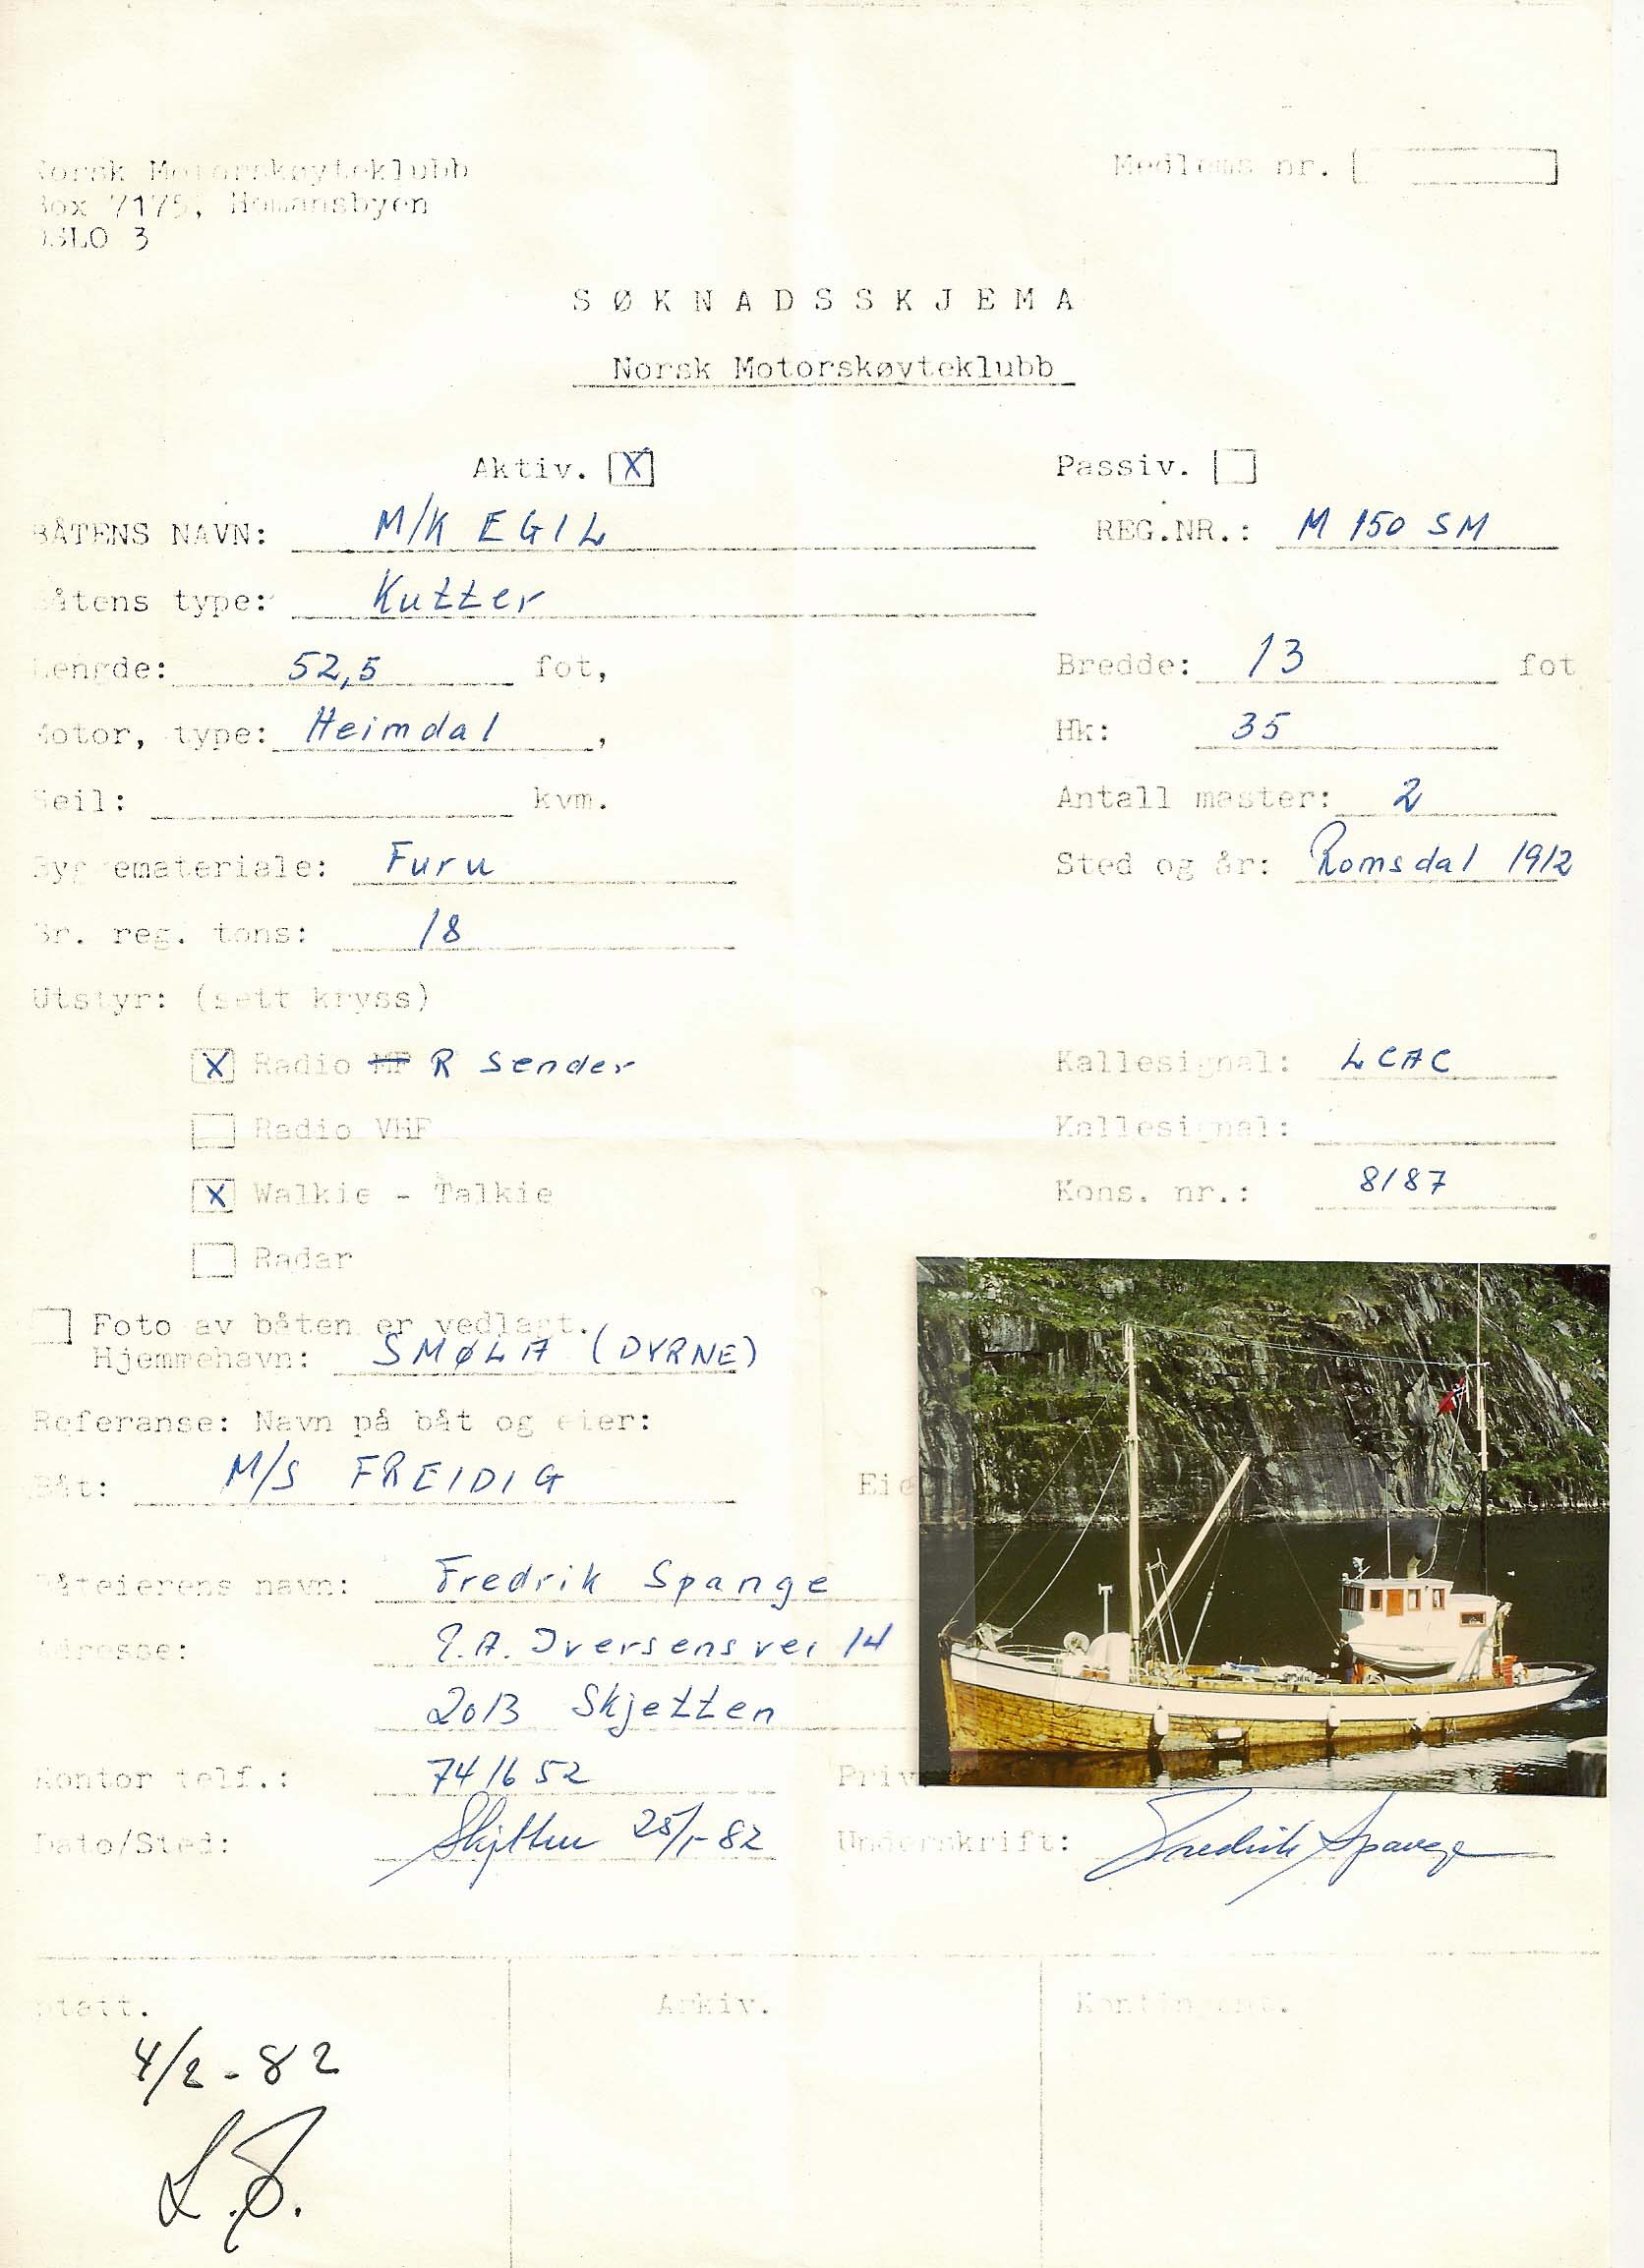 Norsk Motorskøyteklubb
Box 7175, Homansbyen
OSLO 3
Medlems nr.
SØKNADSSKJEMA
Norsk Motorskøyteklubb
Aktiv. [X] Passiv. [ ]
BÅTENS NAVN: M/K EGIL REG.NR.: M 150 SM
Båtens type: Kutter
Lengde: 52,5 fot, Bredde: 13 fot
Motor, type: Heimdal, Hk: 35
Seil: kvm. Antall master: 2
Byggemateriale: Furu Sted og år: Romsdal 1912
Br. reg. tons: 18
Utstyr: (sett kryss)
[X] Radio MF R sender Kallesignal: LCAC
[ ] Radio VHF Kallesignal:
[X] Walkie - Talkie Kons. nr.: 8187
[ ] Radar
[ ] Foto av båten er vedlagt.
Hjemmehavn: SMØLA (DYRNE)
Referanse: Navn på båt og eier:
Båt: M/S FREIDIG Eie
Båteierens navn: Fredrik Spange
Adresse: Iversensvei 14
2013 Skjetten
Kontor telf.: 741652 Priv
Dato/Sted: Skjetten 25/1-82 Underskrift: Fredrik Spange
Arkiv. Kontingent.
4/2-82